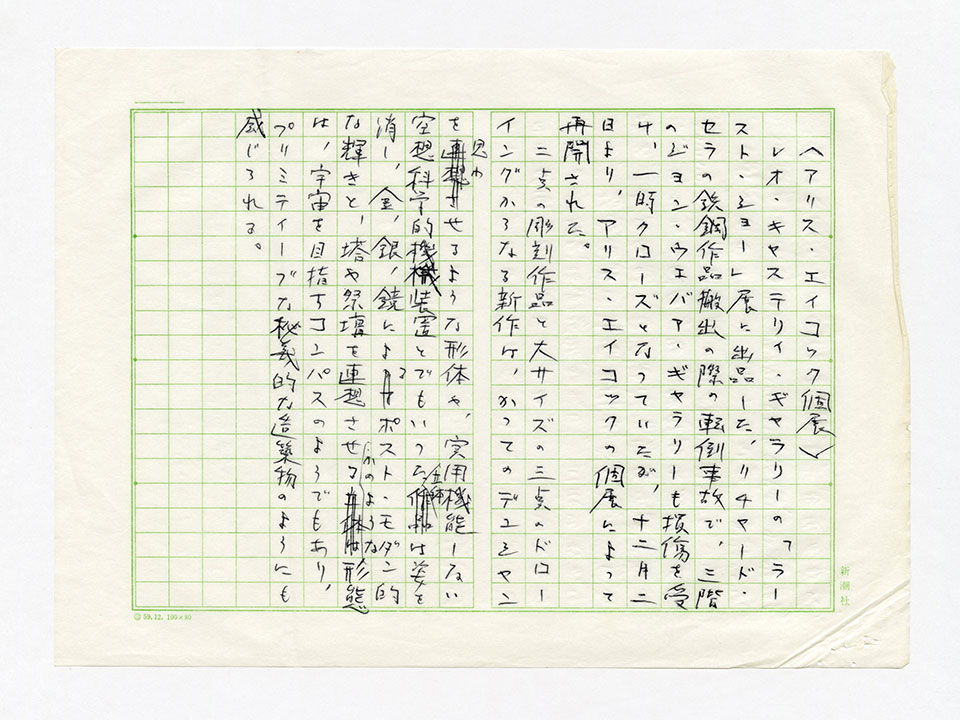 〈アリス・エイコック個展〉
レオ・キャステリィ・ギャラリーの「ラー
スト・ショー」展に出品した、リチャード・
セラの鉄鋼作品搬出の際の転倒事故で、三階
のジョン・ウエバア・ギャラリーも損傷を受
け、一時クローズとなっていたが、十二月二
日より、アリス・エイコックの個展によって
再開された。
二点の彫刻作品と大サイズの三点のドロー
イングからなる新作は、かつてのデュシャン
を思わせるような形体や、実用機能しない
空想科学的機械装置とでもいった は姿を
消し、金、銀、鏡によるポスト・モダン的
な輝きと、塔や祭壇を連想させる かのような形態
は、宇宙を目指すコンパスのようでもあり、
プリミティーブな秘義的な造築物のようにも
感じられる。
新潮社
59.12. 100×30